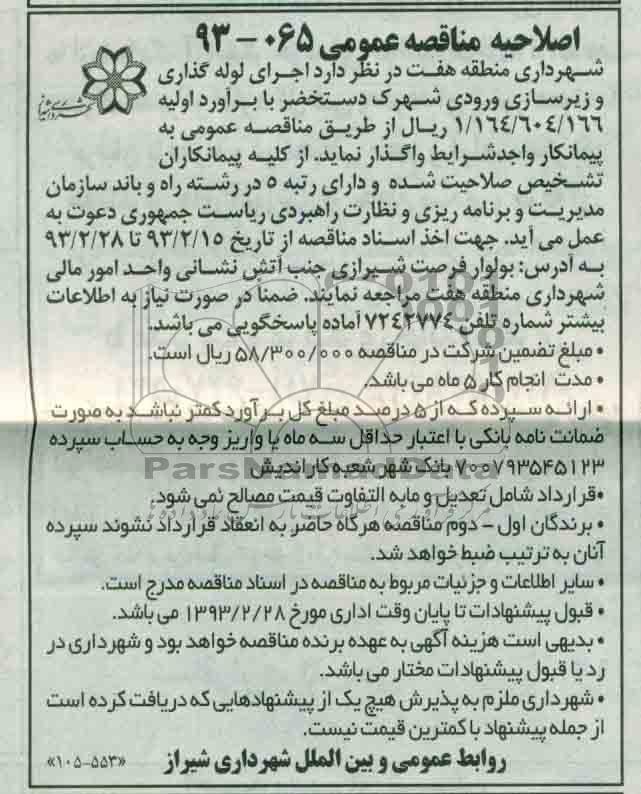 اصلاحیه مناقصه عمومی ۰۶۵ - ۹۳
شهرداری منطقه هفت در نظر دارد اجرای لوله گذاری
و زیرسازی ورودی شهرک دستخضر با برآورد اولیه
۱/۱٦٤/٦۰٤/۱٦٦ ریال از طریق مناقصه عمومی به
پیمانکار واجدشرایط واگذار نماید. از کلیه پیمانکاران
تشخیص صلاحیت شده و دارای رتبه ۵ در رشته راه و باند سازمان
مدیریت و برنامه ریزی و نظارت راهبردی ریاست جمهوری دعوت به
عمل می آید. جهت اخذ اسناد مناقصه از تاریخ ۹۳/۲/۱۵ تا ۹۳/۲/۲۸
به آدرس: بولوار فرصت شیرازی جنب آتش نشانی واحد امور مالی
شهرداری منطقه هفت مراجعه نمایند. ضمنا در صورت نیاز به اطلاعات
بیشتر شماره تلفن ۷۲٤۲۷۷٤ آماده پاسخگویی می باشد.
• مبلغ تضمین شرکت در مناقصه ۵۸/۳۰۰/۰۰۰ ریال است.
• مدت انجام کار ۵ ماه می باشد.
• ارائه سپرده که از ۵ درصد مبلغ کل برآورد کمتر نباشد به صورت
ضمانت نامه بانکی با اعتبار حداقل سه ماه یا واریز وجه به حساب سپرده
۷۰۰۷۹۳۵۴۵۱۲۳ بانک شهر شعبه کاراندیش
•قرارداد شامل تعدیل و مابه التفاوت قیمت مصالح نمی شود.
• برندگان اول - دوم مناقصه هرگاه حاضر به انعقاد قرارداد نشوند سپرده
آنان به ترتیب ضبط خواهد شد.
• سایر اطلاعات و جزئیات مربوط به مناقصه در اسناد مناقصه مدرج است.
• قبول پیشنهادات تا پایان وقت اداری مورخ ۱۳۹۳/۲/۲۸ می باشد.
• بدیهی است هزینه آگهی به عهده برنده مناقصه خواهد بود و شهرداری در
رد یا قبول پیشنهادات مختار می باشد.
• شهرداری ملزم به پذیرش هیچ یک از پیشنهادهایی که دریافت کرده است
از جمله پیشنهاد با کمترین قیمت نیست.
روابط عمومی و بین الملل شهرداری شیراز «۱۰۵-۵۵۳»
ParsNamadData